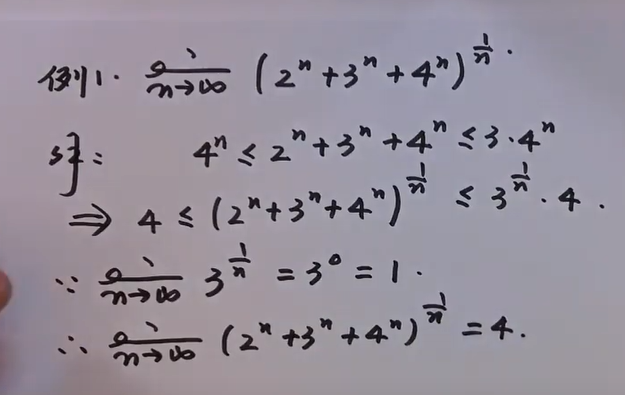 例1. lim n→∞ (2ⁿ+3ⁿ+4ⁿ)^(1/n).
解: 4ⁿ ≤ 2ⁿ+3ⁿ+4ⁿ ≤ 3·4ⁿ
⇒ 4 ≤ (2ⁿ+3ⁿ+4ⁿ)^(1/n) ≤ 3^(1/n)·4.
∵ lim n→∞ 3^(1/n) = 3⁰ = 1.
∴ lim n→∞ (2ⁿ+3ⁿ+4ⁿ)^(1/n) = 4.